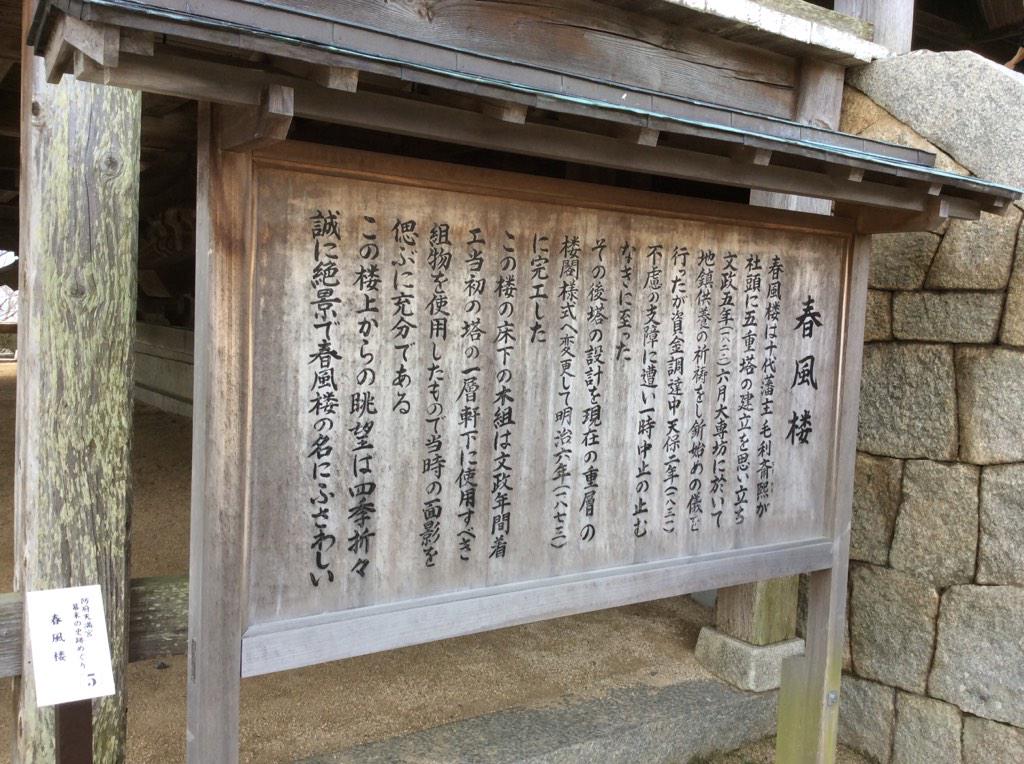 春風楼
春風楼は十代藩主毛利斉熙が
社頭に五重塔の建立を思い立ち
文政五年(一八二二)六月大専坊に於いて
地鎮供養の祈祷をし釿始めの儀を
行ったが資金調達中天保二年(一八三一)
不慮の支障に遭い一時中止の止む
なきに至った
その後塔の設計を現在の重層の
楼閣様式へ変更して明治六年(一八七三)
に完工した
この楼の床下の木組は文政年間着
工当初の塔の一層軒下に使用すべき
組物を使用したもので当時の面影を
偲ぶに充分である
この楼上からの眺望は四季折々
誠に絶景で春風楼の名にふさわしい
防府天満宮
幕末の史跡めぐり
5
春風楼